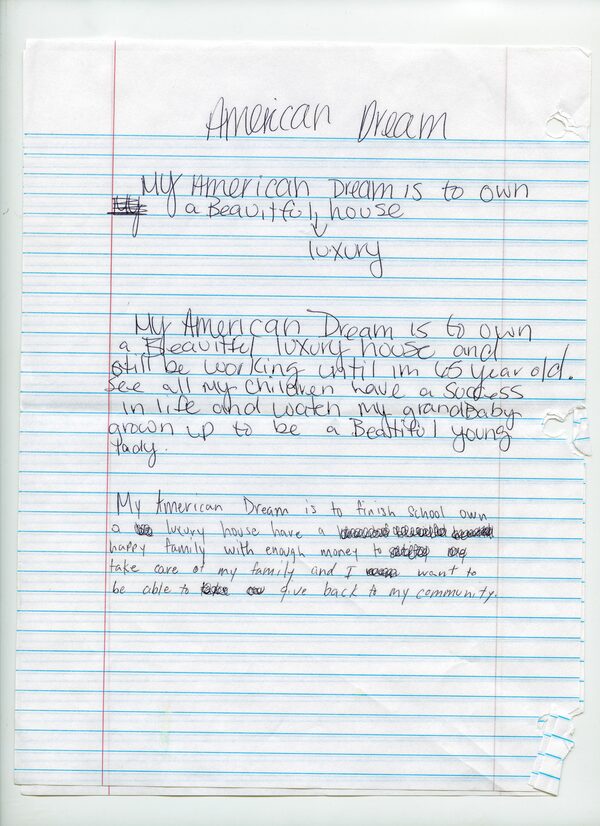 American Dream
My American Dream is to own
a Beauitful house
luxury
My American Dream is to own
a Beauitful luxury house and
still be working until im 65 year old.
See all my children have a success
in life and watch my grandBaby
grown up to be a Beatiful young
lady.
My American Dream is to finish school own
a luxury house have a
happy family with enough money to
take care of my family and I want to
be able to give back to my community.